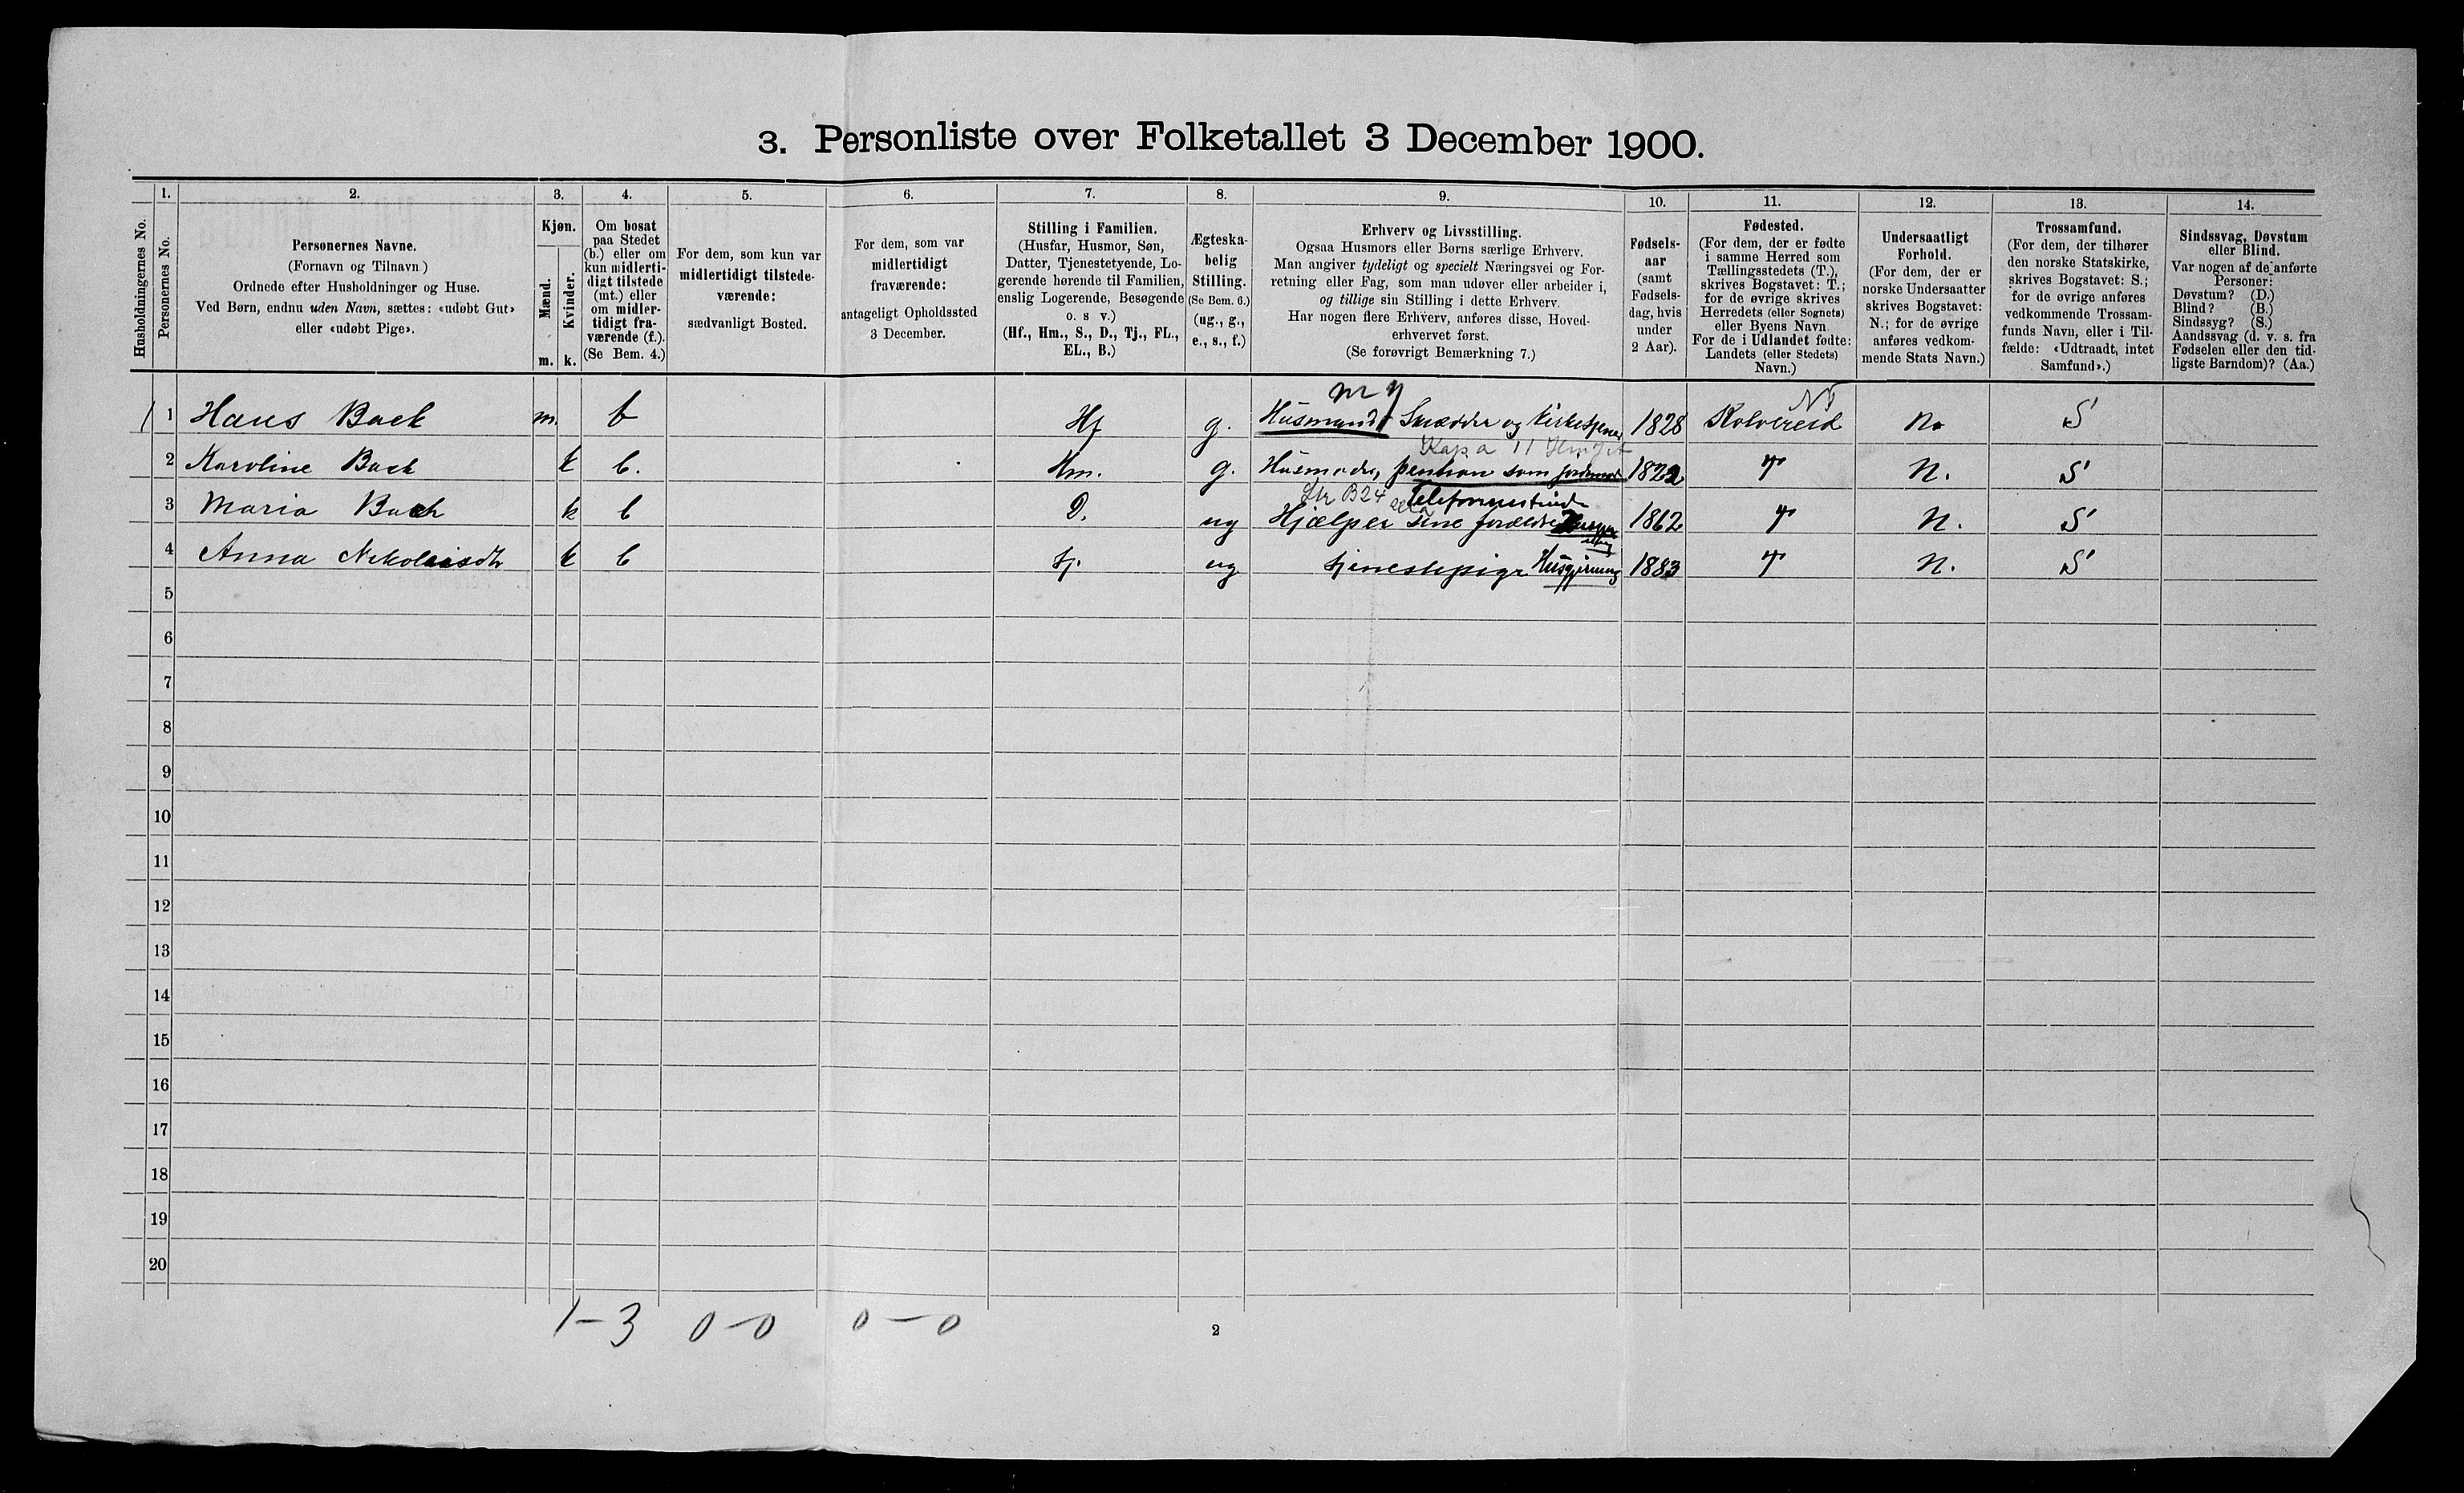 3. Personliste over Folketallet 3 December 1900.
Husholdningernes No.
1.
Personernes No.
2.
Personernes Navne.
(Fornavn og Tilnavn)
Ordnede efter Husholdninger og Huse.
Ved Børn, endnu uden Navn, sættes: «udøbt Gut»
eller «udøbt Pige».
3.
Kjøn.
Mænd.
Kvinder.
m. k.
4.
Om bosat
paa Stedet
(b.) eller om
kun midlerti-
digt tilstede
(mt.) eller
om midler-
tidigt fra-
værende (f.).
(Se Bem. 4.)
5.
For dem, som kun var
midlertidigt tilstede-
værende:
sædvanligt Bosted.
6.
For dem, som var
midlertidigt
fraværende:
antageligt Opholdssted
3 December.
7.
Stilling i Familien.
(Husfar, Husmor, Søn,
Datter, Tjenestetyende, Lo-
gerende hørende til Familien,
enslig Logerende, Besøgende
o. s v.)
(Hf., Hm., S., D., Tj., FL.,
EL., B.)
8.
Ægteska-
belig
Stilling.
(Se Bem. 6.)
(ug., g.,
e., s., f.)
9.
Erhverv og Livsstilling.
Ogsaa Husmors eller Børns særlige Erhverv.
Man angiver tydeligt og specielt Næringsvei og For-
retning eller Fag, som man udøver eller arbeider i,
og tillige sin Stilling i dette Erhverv.
Har nogen flere Erhverv, anføres disse, Hoved-
erhvervet først.
(Se forøvrigt Bemærkning 7.)
10.
Fødsels-
aar
(samt
Fødsels-
dag, hvis
under
2 Aar).
11.
Fødested.
(For dem, der er fødte
i samme Herred som
Tællingsstedets (T.),
skrives Bogstavet: T.;
for de øvrige skrives
Herredets (eller Sognets)
eller Byens Navn.
For de i Udlandet fødte:
Landets (eller Stedets)
Navn.)
12.
Undersaatligt
Forhold.
(For dem, der er
norske Undersaatter
skrives Bogstavet:
N.; for de øvrige
anføres vedkom-
mende Stats Navn.)
13.
Trossamfund.
(For dem, der tilhører
den norske Statskirke,
skrives Bogstavet: S.;
for de øvrige anføres
vedkommende Trossam-
funds Navn, eller i Til-
fælde: «Udtraadt, intet
Samfund».)
14.
Sindssvag, Døvstum
eller Blind.
Var nogen af de anførte
Personer:
Døvstum? (D.)
Blind? (B.)
Sindssyg? (S.)
Aandssvag (d. v. s. fra
Fødselen eller den tid-
ligste Barndom)? (Aa.)
m y NT
1 1 Hans Back m. b Hf g. Husmand Skrædder og Kirketjener 1828 Kolvereid N. S
2 Karoline Back k b. Hm. g. Husmoder, pension som jordmoder 1822 T N. S
B24 Telefonbestinde
3 Maria Bach k b D. ug Hjælper sine forældre 1862 T N. S
4 Anna Nikolaisdtr k b tj. ug tjenestepige Husgjerning 1883 T N. S
5
6
7
8
9
10
11
12
13
14
15
16
17
18
19
20
1-3 0-0 0-0
2